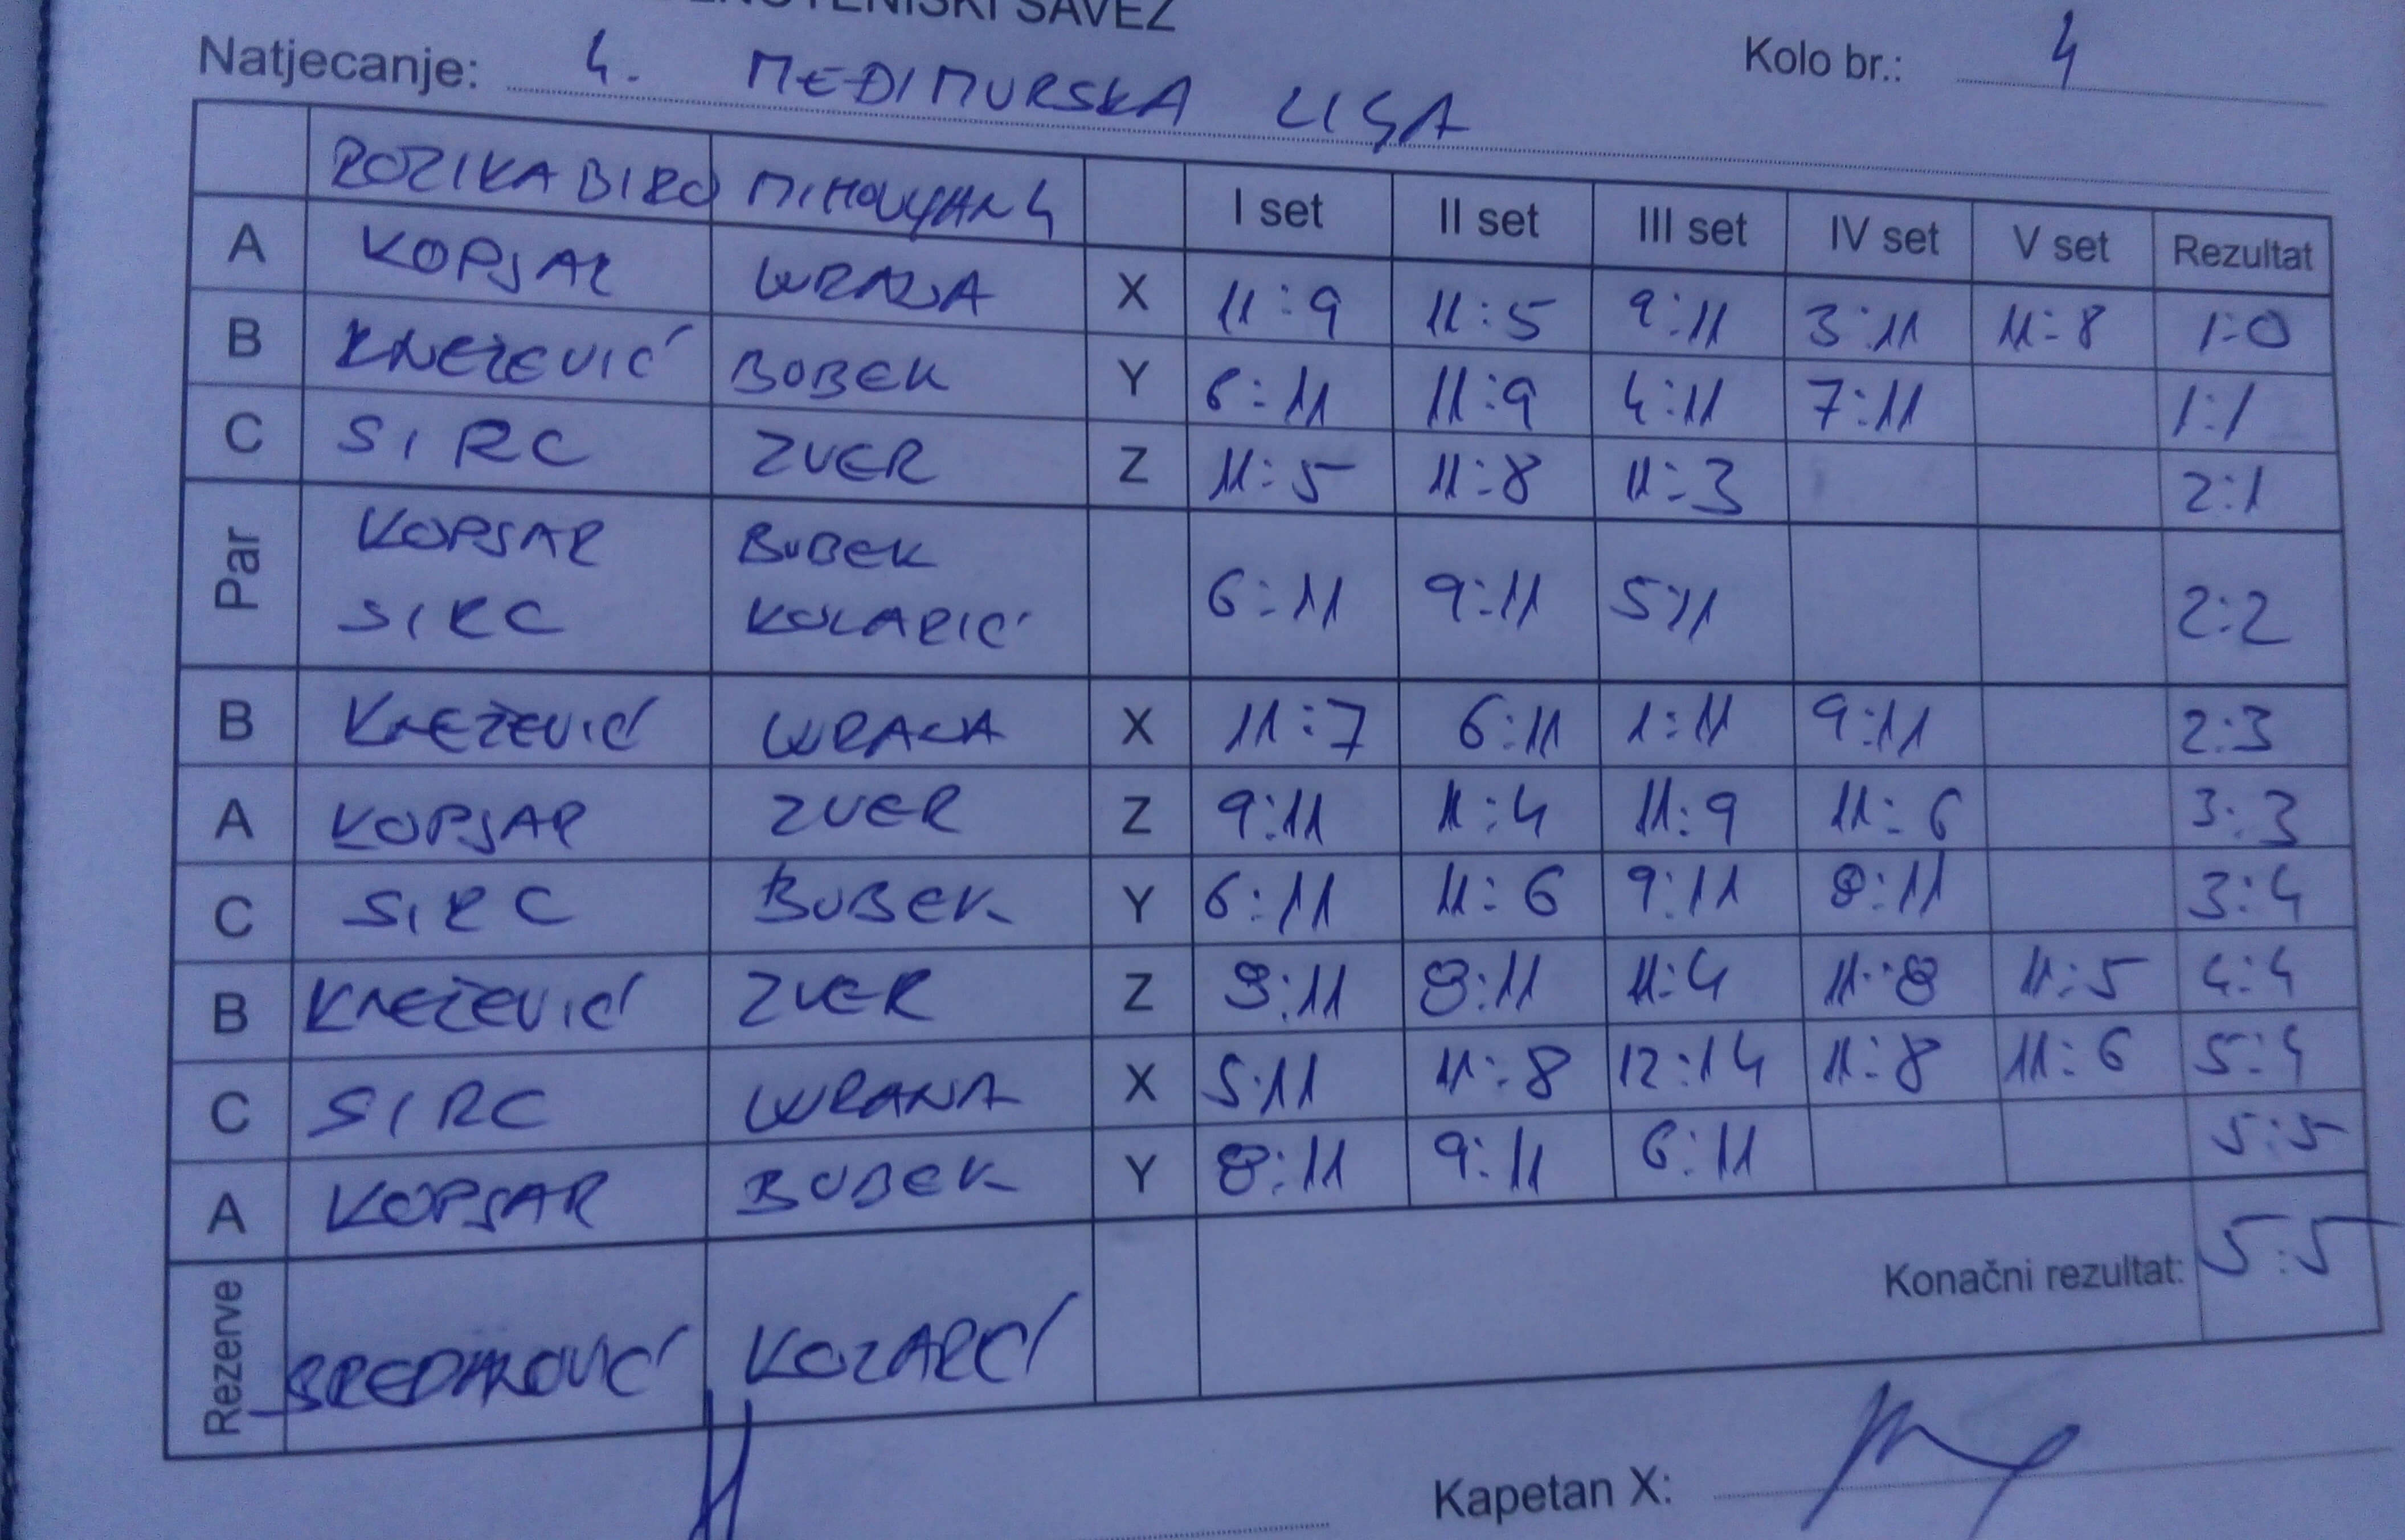 SAVEZ
Natjecanje: 4. MEĐIMURSKA LIGA Kolo br.: 4
ROZIKA BIRO MIHOVLJAN 4 I set II set III set IV set V set Rezultat
A KOPJAR WRANA X 11:9 11:5 9:11 3:11 11:8 1:0
B KNEŽEVIĆ BUBEK Y 6:11 11:9 4:11 7:11 1:1
C SIRC ZVER Z 11:5 11:8 11:3 2:1
Par KOPJAR BUBEK
SIRC KOLARIĆ 6:11 9:11 5:11 2:2
B KNEŽEVIĆ WRANA X 11:7 6:11 1:11 9:11 2:3
A KOPJAR ZVER Z 9:11 11:4 11:9 11:6 3:3
C SIRC BUBEK Y 6:11 11:6 9:11 8:11 3:4
B KNEŽEVIĆ ZVER Z 11 8:11 11:4 11:8 11:5 4:4
C SIRC WRANA X 5:11 11:8 12:14 11:8 11:6 5:4
A KOPJAR BUBEK Y 8:11 9:11 6:11 5:5
Konačni rezultat: 5:5
Rezerve
Kapetan X: